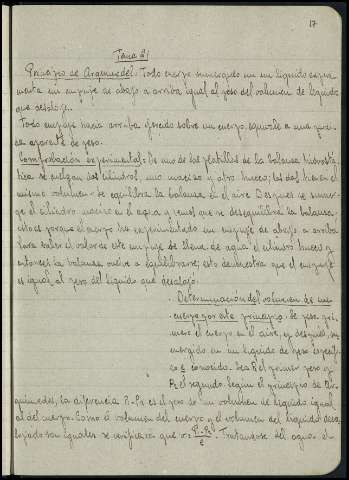 17
Tema 9:
Principio de Arquímedes: Todo cuerpo sumergido en un líquido experi-
menta un empuje de abajo a arriba igual al peso del volumen de líquido
que desaloja.
Todo empuje hacia arriba ejercido sobre un cuerpo, equivale a una pérdi-
da aparente de peso.
Comprobación experimental: De uno de los platillos de la balanza hidrostá-
tica se cuelgan dos cilindros, uno macizo y otro hueco; los dos tienen el
mismo volumen - se equilibra la balanza en el aire. Despues se sumer-
ge el cilindro macizo en el agua y vemos que se desequilibra la balanza;
esto es porque el cuerpo ha experimentado un empuje de abajo a arriba.
Para hallar el valor de este empuje se llena de agua el cilindro hueco y
entonces la balanza vuelve a equilibrarse; esto demuestra que el empuje
es igual al peso del líquido que desaloja.
Determinación del volumen de un
cuerpo por este principio. Se pesa pri-
mero el cuerpo en el aire, y después, su-
mergido en un líquido de peso específi-
co e conocido. Sea P₁ el primer peso y
P₂ el segundo. Según el principio de Ar-
químedes, la diferencia P₁-P₂ es el peso de un volumen de líquido igual
al del cuerpo. Como el volumen del cuerpo y el volumen del líquido desa-
lojado son iguales se verifica que v = P₁-P₂/e. Tratandose del agua, el